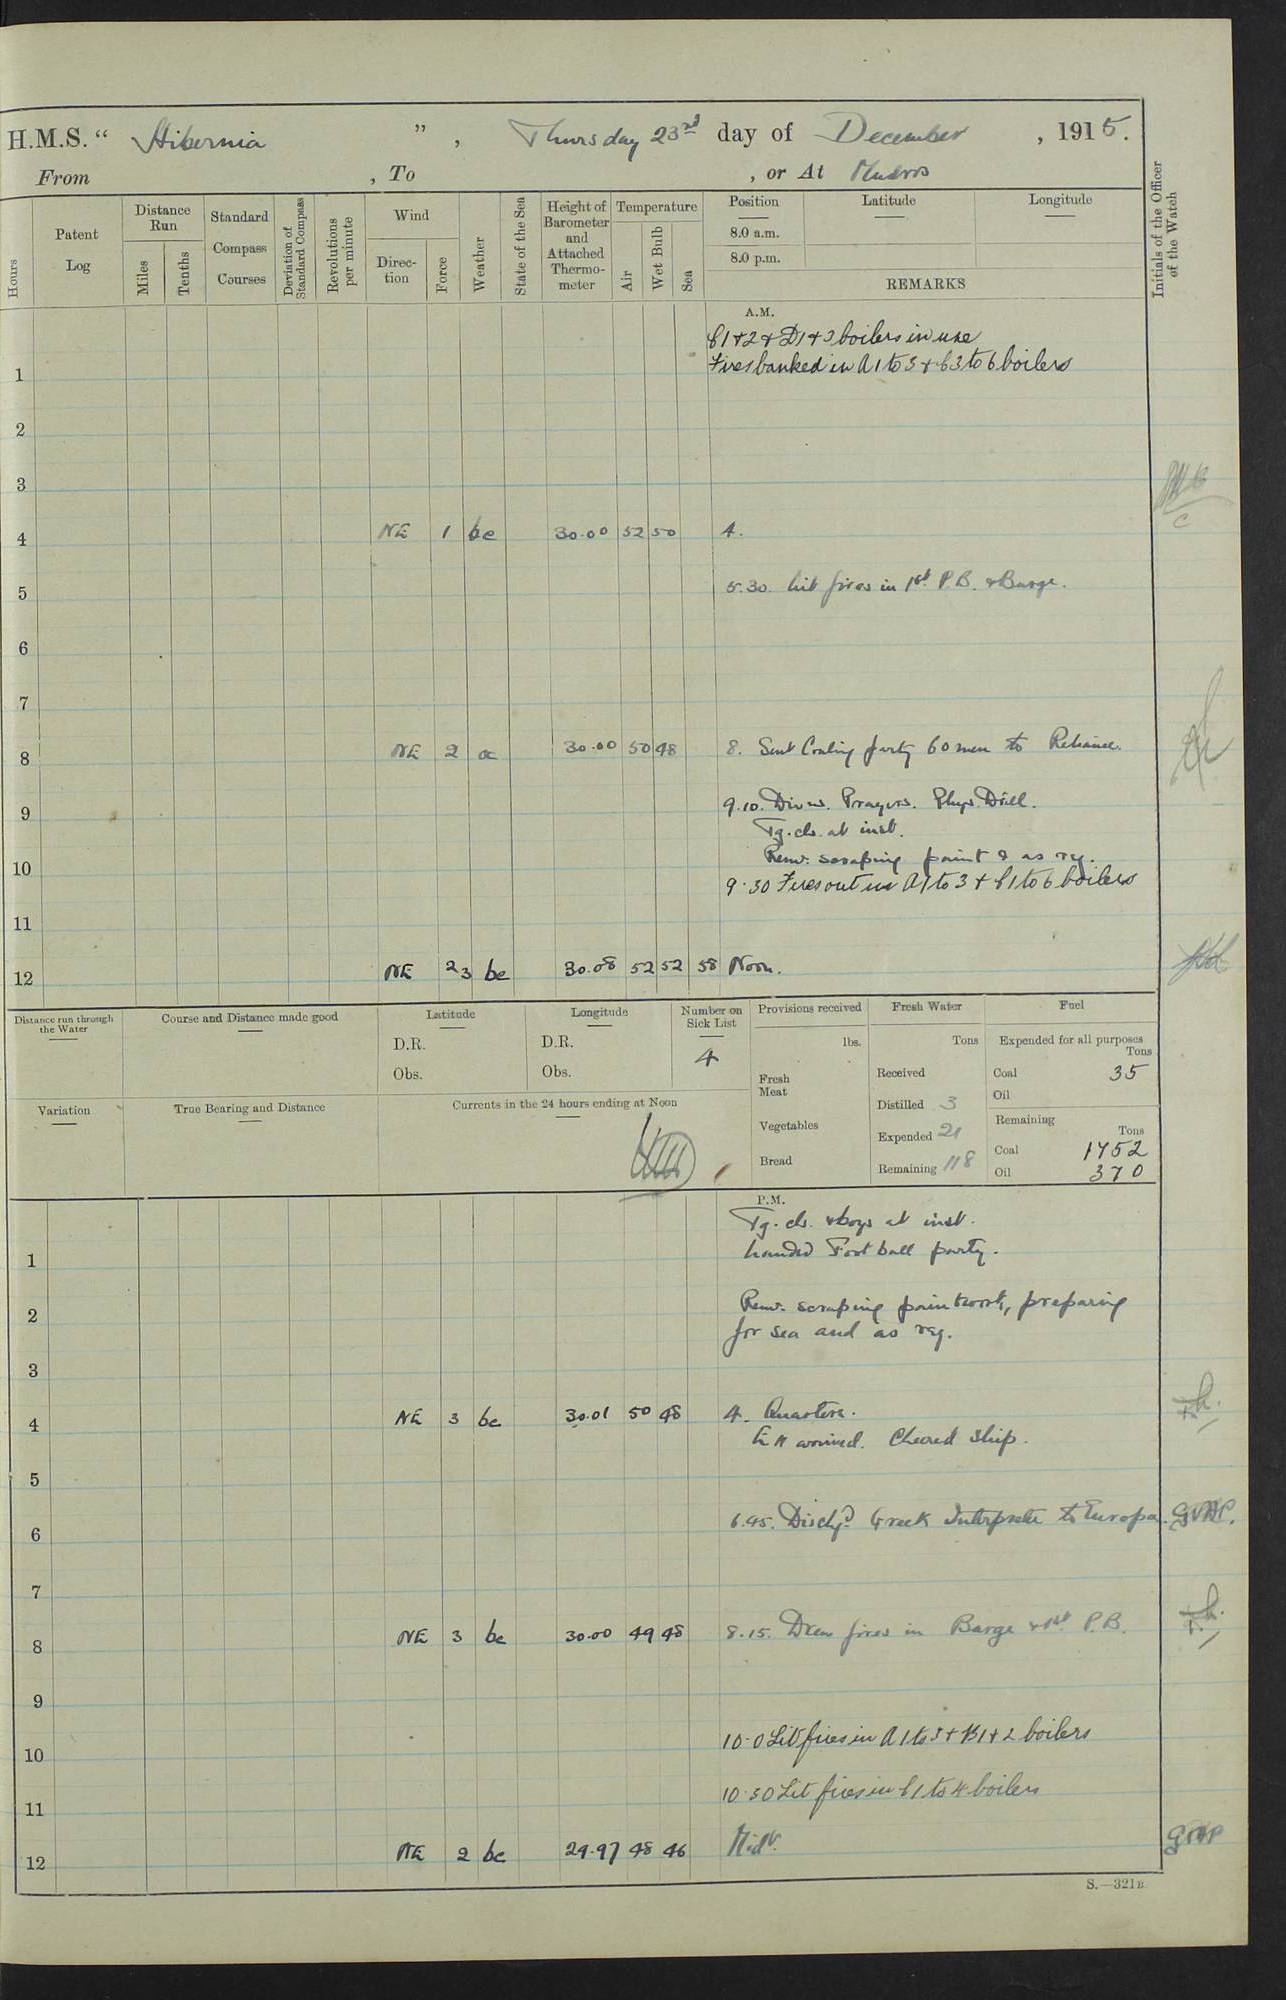 H.M.S. “ Hibernia ” , Thursday 23rd day of December , 1915.
From , To , or At Mudros
Hours
Patent Log
Distance Run
Miles
Tenths
Standard Compass Courses
Deviation of Standard Compass
Revolutions per minute
Wind
Direction
Force
Weather
State of the Sea
Height of Barometer and Attached Thermometer
Temperature
Air
Wet Bulb
Sea
Position
8.0 a.m.
8.0 p.m.
Latitude
Longitude
REMARKS
Initials of the Officer of the Watch
A.M.
1+2 + D1+3 boilers in use
1 Fires banked in A1 to 3 + 3 to 6 boilers
2
3
4 NE 1 bc 30.00 52 50 4.
5 5.30. Lit fires in 1st P.B. & Barge.
6
7
8 NE 2 30.00 50 48 8. Sent Coaling party 60 men to Reliance.
9 9.10. Divns. Prayers. Phys. Drill.
Tg. cls. at inst.
10 Remr. scraping paint & as req.
9.30 Fires out in A1 to 3 + 1 to 6 boilers
11
12 NE 23 bc 30.08 52 52 58 Noon.
Distance run through the Water
Course and Distance made good
Latitude
D.R.
Obs.
Longitude
D.R.
Obs.
Number on Sick List
4
Provisions received
lbs.
Fresh Meat
Vegetables
Bread
Fresh Water
Tons
Received
Distilled 3
Expended 21
Remaining 118
Fuel
Expended for all purposes
Tons
Coal 35
Oil
Remaining
Tons
Coal 1752
Oil 370
Variation
True Bearing and Distance
Currents in the 24 hours ending at Noon
P.M.
Tg. cls. & boys at inst.
1 Landed Football party.
2 Remr. scraping paintwork, preparing
for sea and as req.
3
4 NE 3 bc 30.01 50 48 4. Quarters.
E11 arrived. Cheered ship.
5
6 6.45. Dischgd Greek Interpreter to Europa. GVHP.
7
8 NE 3 bc 30.00 49 48 8.15. Drew fires in Barge & 1st P.B.
9
10 10.0 Lit fires in A1 to 3 + B1+2 boilers
11 10.30 Lit fires in 1 to 4 boilers
12 NE 2 bc 29.97 48 46 Midt.
S.—321B